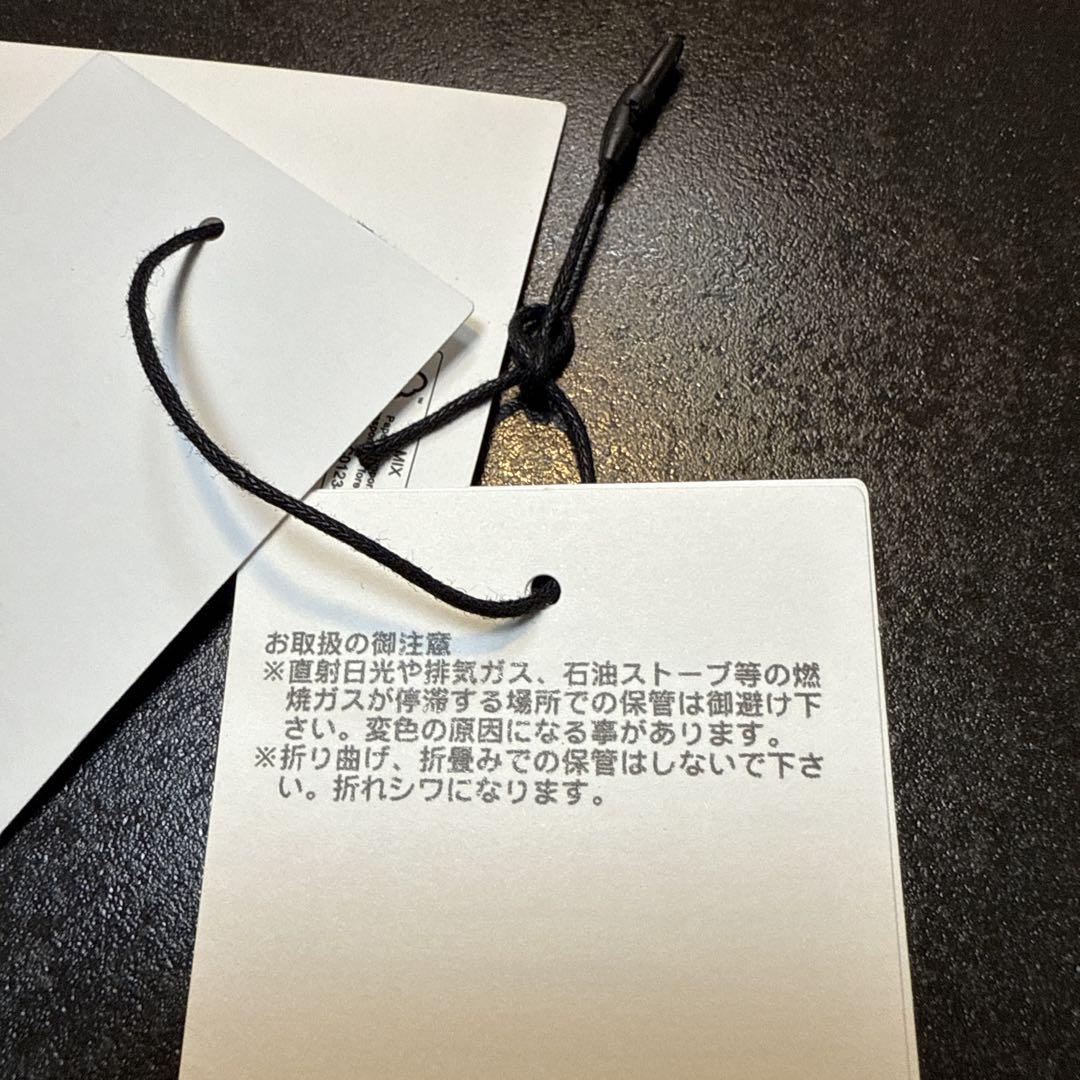 MIX
お取扱の御注意
※直射日光や排気ガス、石油ストーブ等の燃
焼ガスが停滞する場所での保管は御避け下
さい。変色の原因になる事があります。
※折り曲げ、折畳みでの保管はしないで下さ
い。折れシワになります。